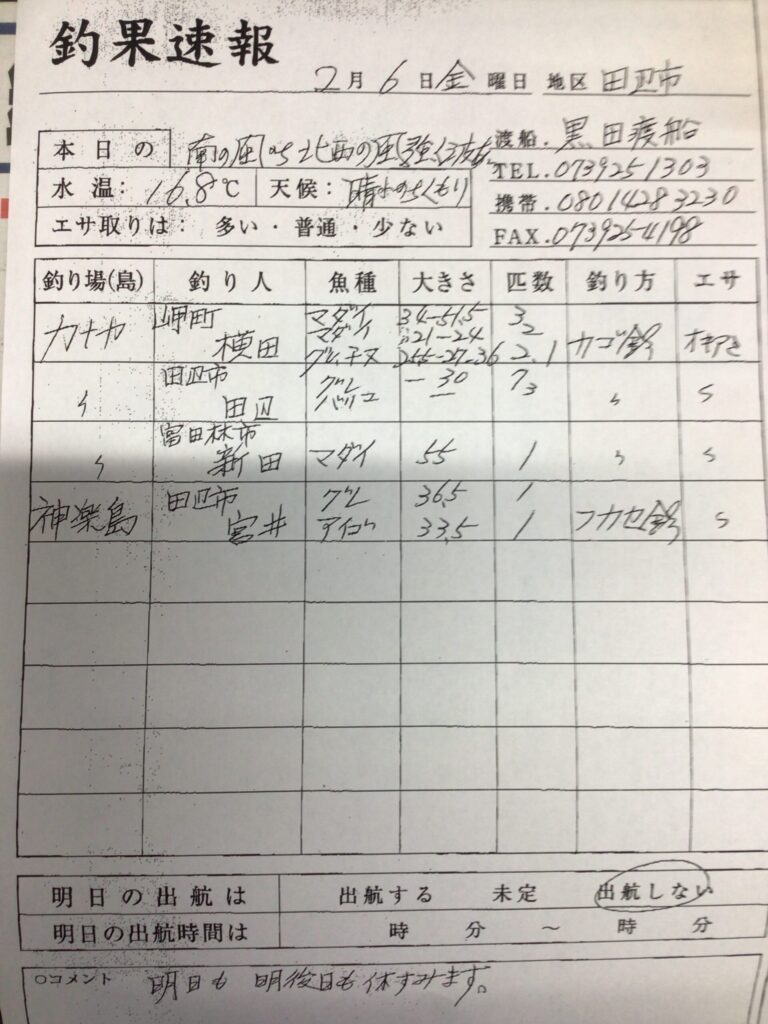 釣果速報
2月6日金曜日 地区 田辺市
渡船. 黒田渡船
TEL. 0739251303
携帯. 08014283230
FAX. 073925-4198
本日の 南の風のち北西の風強く
水温: 16.8℃ 天候: 晴れのちくもり
エサ取りは: 多い・普通・少ない
釣り場(島) 釣り人 魚種 大きさ 匹数 釣り方 エサ
カナカ 岬町 横田 マダイ 34-51.5 3
マダイ 21-24 2 カゴ釣
グレ、チヌ 255-27-36 2.1 オキアミ
〃 田辺市 田辺 グレ - 30 7 〃 〃
バリコ - 3
〃 富田林市 新田 マダイ 55 1 〃 〃
神楽島 田辺市 宮井 グレ 36.5 1
アイゴ 33.5 1 フカセ釣 〃
明日の出航は 出航する 未定 出航しない
明日の出航時間は 時 分 ～ 時 分
○コメント 明日も 明後日も休すみます。